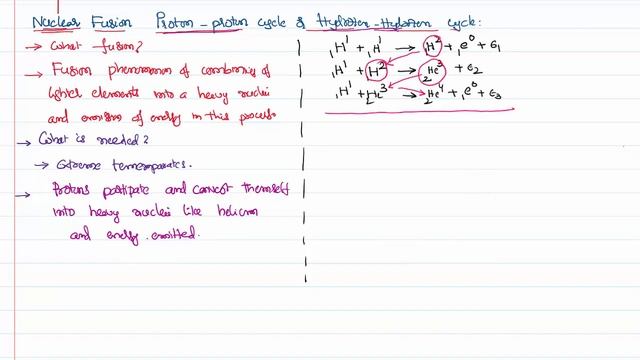 Nuclear Fusion Proton-proton cycle & Hydrogen-Hydrogen cycle:
→ What fusion?
→ Fusion phenomenon of combining of
lighter elements into a heavy nuclei
and emission of energy in this process
→ What is needed?
→ Extreme temperatures.
→ Protons participate and convert themself
into heavy nuclei like helium
and energy emitted.
₁H¹ + ₁H¹ → ₁H² + ₁e⁰ + ε₁
₁H¹ + ₁H² → ₂He³ + ε₂
₁H¹ + ₂He³ → ₂He⁴ + ₁e⁰ + ε₃